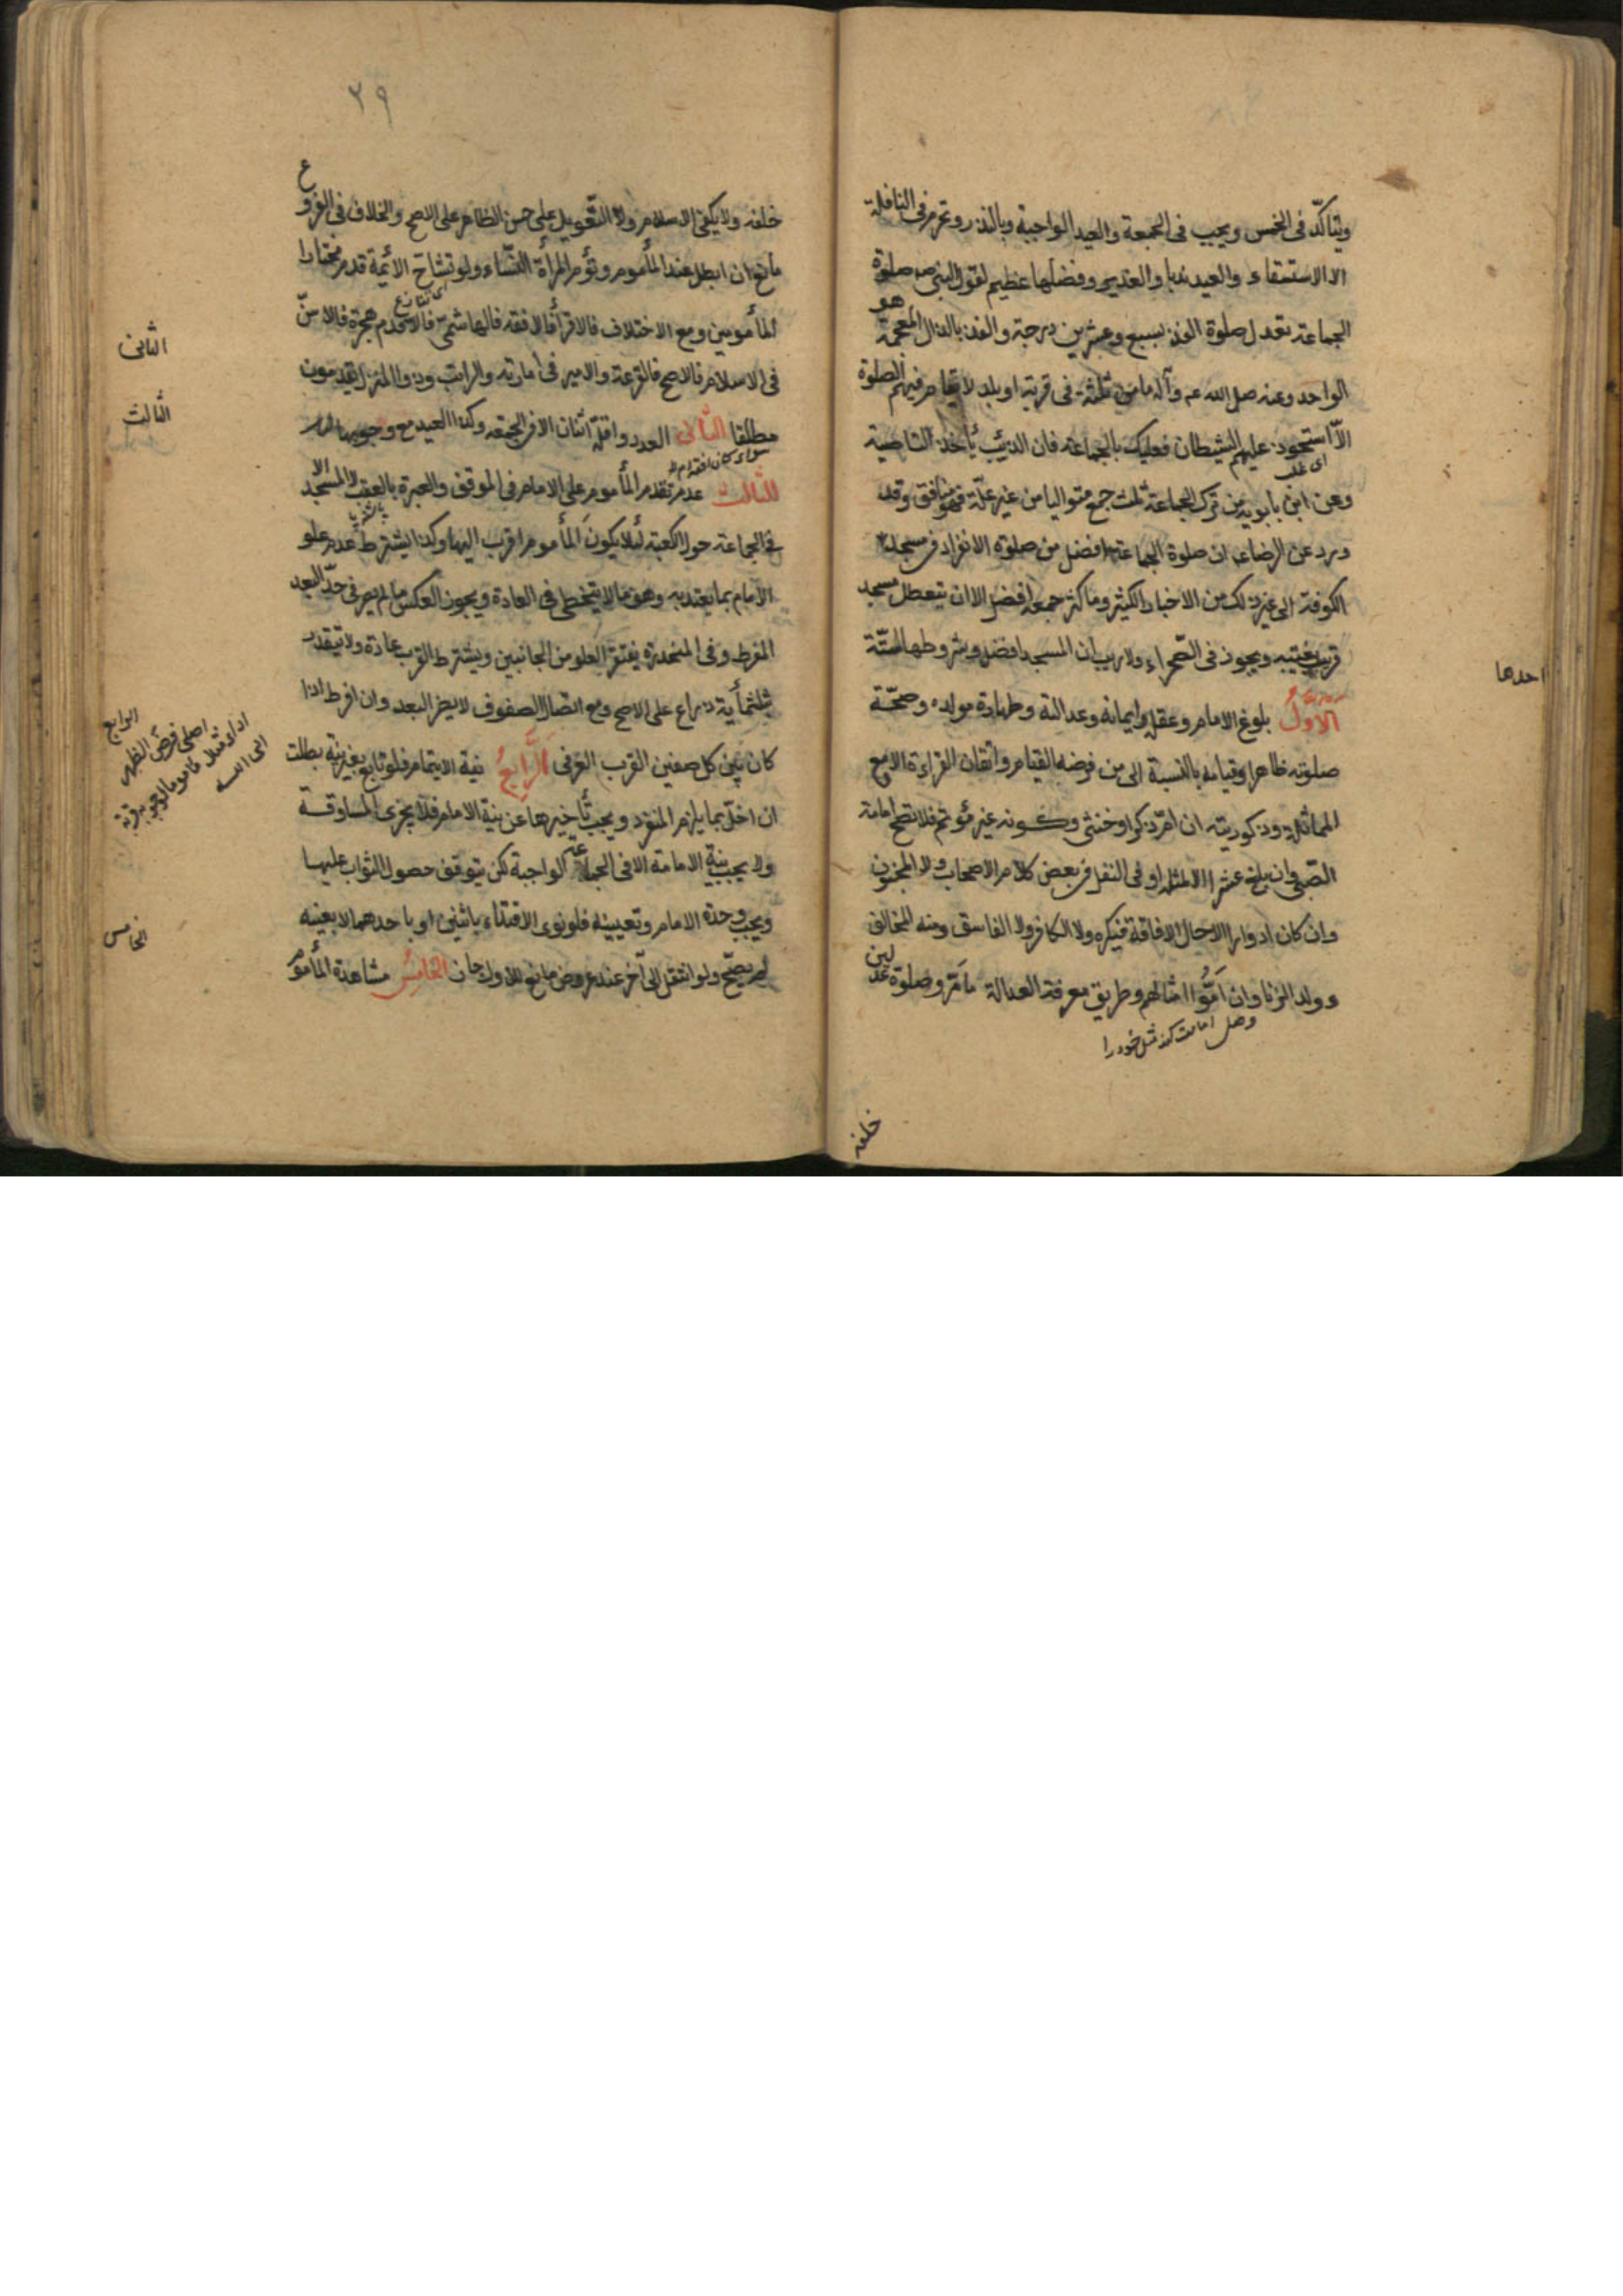 ويتاكّد فى الخمس ويجب فى الجمعة والعيد الواجبة وبالنذر وتحرم فى النافلة
الا الاستسقاء والعيد ندبا والغدير وفضلها عظيم لقول النبى ص صلوة
الجماعة تعدل صلوة الفذ بسبع وعشرين درجة والفذ بالذال المعجمة
هو
الواحد وعنه صلى الله عم وآله ما من ثلثة فى قرية او بلد لا تقام فيهم الصلوة
الّا استحوذ عليهم الشيطان فعليك بالجماعة فان الذئب يأخذ القاصية
اى غلب
وعن ابن بابويه من ترك الجماعة ثلث جمع متواليا من غير علّة فهو منافق وقد
ورد عن الرضا ع ان صلوة الجماعة افضل من صلوة الانفراد فى مسجد
الكوفة الى غير ذلك من الاخبار الكثير وما كثر جمعه افضل الا ان يتعطل مسجد
قريب بغيبته ويجوز فى الصّحراء ولا ريب ان المسجد افضل وشروطها الستّة
احدها
الاول بلوغ الامام وعقله وايمانه وعدالته وطهارة مولده وصحّة
صلوته ظاهرا وقيامه بالنسبة الى من فرضه القيام واتقان القراءة الا مع
المماثلة وذكوريته ان امّ ذكرا او خنثى وكونه غير مؤتم فلا تصح امامة
الصّبى وان بلغ عشرا الا لمثله او فى النفل فى بعض كلام الاصحاب ولا المجنون
وان كان ادوارا الا حال الافاقة فيكره ولا الكافر ولا الفاسق ومنه المخالف
وولد الزنا وان امّوا امثالهم وطريق معرفة العدالة ما مرّ وصلوة عدلين
خلفه
خلفه ولا يكفى الاسلام ولا التّعويل على حسن الظاهر على الاصح والخلاف فى الفروع
مانع ان ابطل عند المأموم وتؤم المرأة النّساء ولو تشاحّ الأئمة قدم مختار
اى تنازع
المأمومين ومع الاختلاف فالاقرأ فالافقه فالهاشمى فالاقدم هجرة فالاسنّ
الثانى
فى الاسلام فالاصبح فالقرعة والامير فى امارته والراتب وذو المنزل يقدمون
الثالث
مطلقا الثانى العدد واقلّه اثنان الا فى الجمعة وكذا العيد مع وجوبها
الثالث عدم تقدم المأموم على الامام فى الموقف والعبرة بالعقب لا المسجد الا
فى الجماعة حول الكعبة لئلا يكون المأموم اقرب اليها وكذا يشترط عدم علو
الامام بما يعتد به وهو ما لا يتخطى فى العادة ويجوز العكس ما لم يصر فى حدّ البعد
المفرط وفى المنحدرة يغتفر العلو من الجانبين ويشترط القرب عادة ولا يتقدر
بثلثمأية ذراع على الاصح ومع اتصال الصفوف لا يضر البعد وان افرط اذا
الرابع
كان بين كل صفين القرب العرفى الرابع نية الايتمام فلو تابع بغير نية بطلت
ان اخلّ بما يلزم المنفرد ويجب تأخيرها عن نية الامام فلا يجزى المساوقة
ولا يجب نية الامامة الا فى الجماعة الواجبة لكن يتوقف حصول الثواب عليها
ويجب وحدة الامام وتعيينه فلو نوى الاقتداء باثنين او باحدهما لا بعينه
الخامس
لم يصحّ ولو انتقل الى آخر عند عروض مانع للاول جاز الخامس مشاهدة المأموم